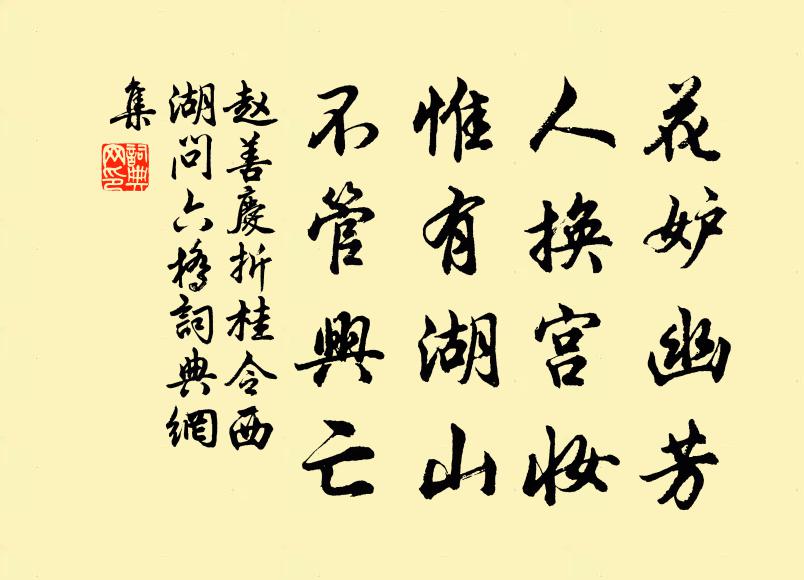 花妒幽芳
人换宫妆
惟有湖山
不管興亡
赵善慶折桂令西
湖問六橋詞典網
集
詞典
网印